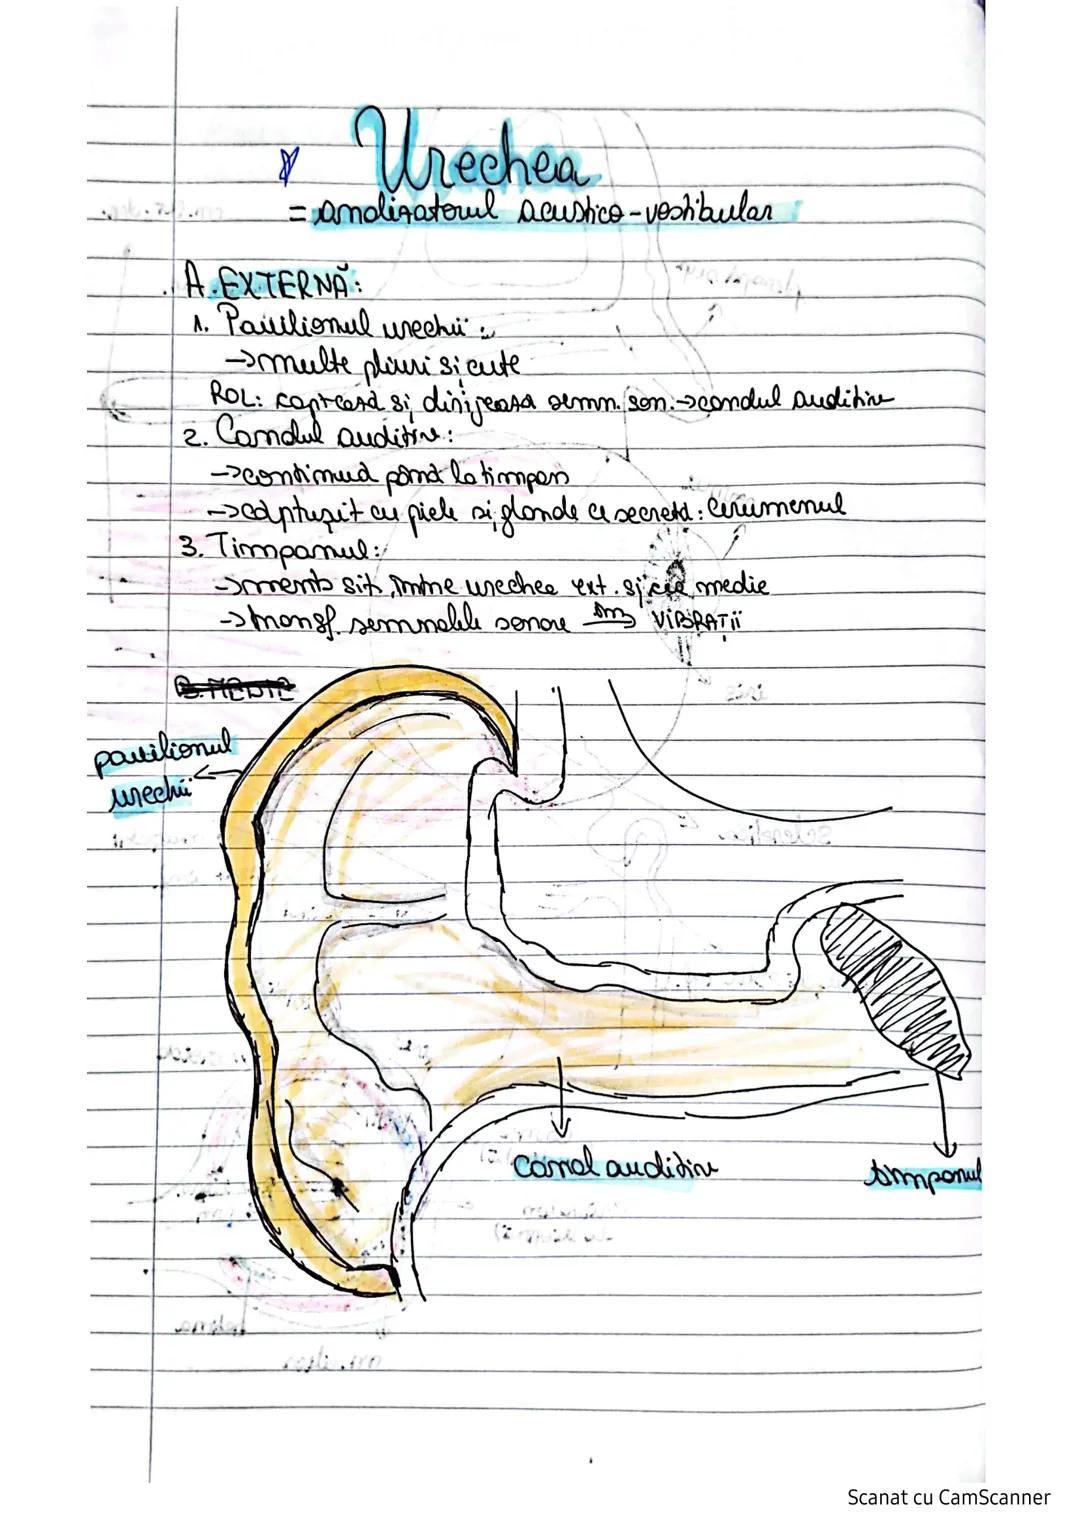 Urechea
= analizatorul acustico-vestibular
A. EXTERNĂ:
1. Pavilionul urechii:
→ multe pliuri și cute
ROL: captează și dirijează semn. son. → canalul auditiv
2. Canalul auditiv:
→ continuă până la timpan
→ căptușit cu piele și glande ce secretă: Cerumenul
3. Timpanul:
→ memb sit. între urechea ext. și cea medie
→ transf. semnalele sonore în VIBRAȚII
B. MEDIE
pavilionul
urechii
canal auditiv
timpanul
Scanat cu CamScanner